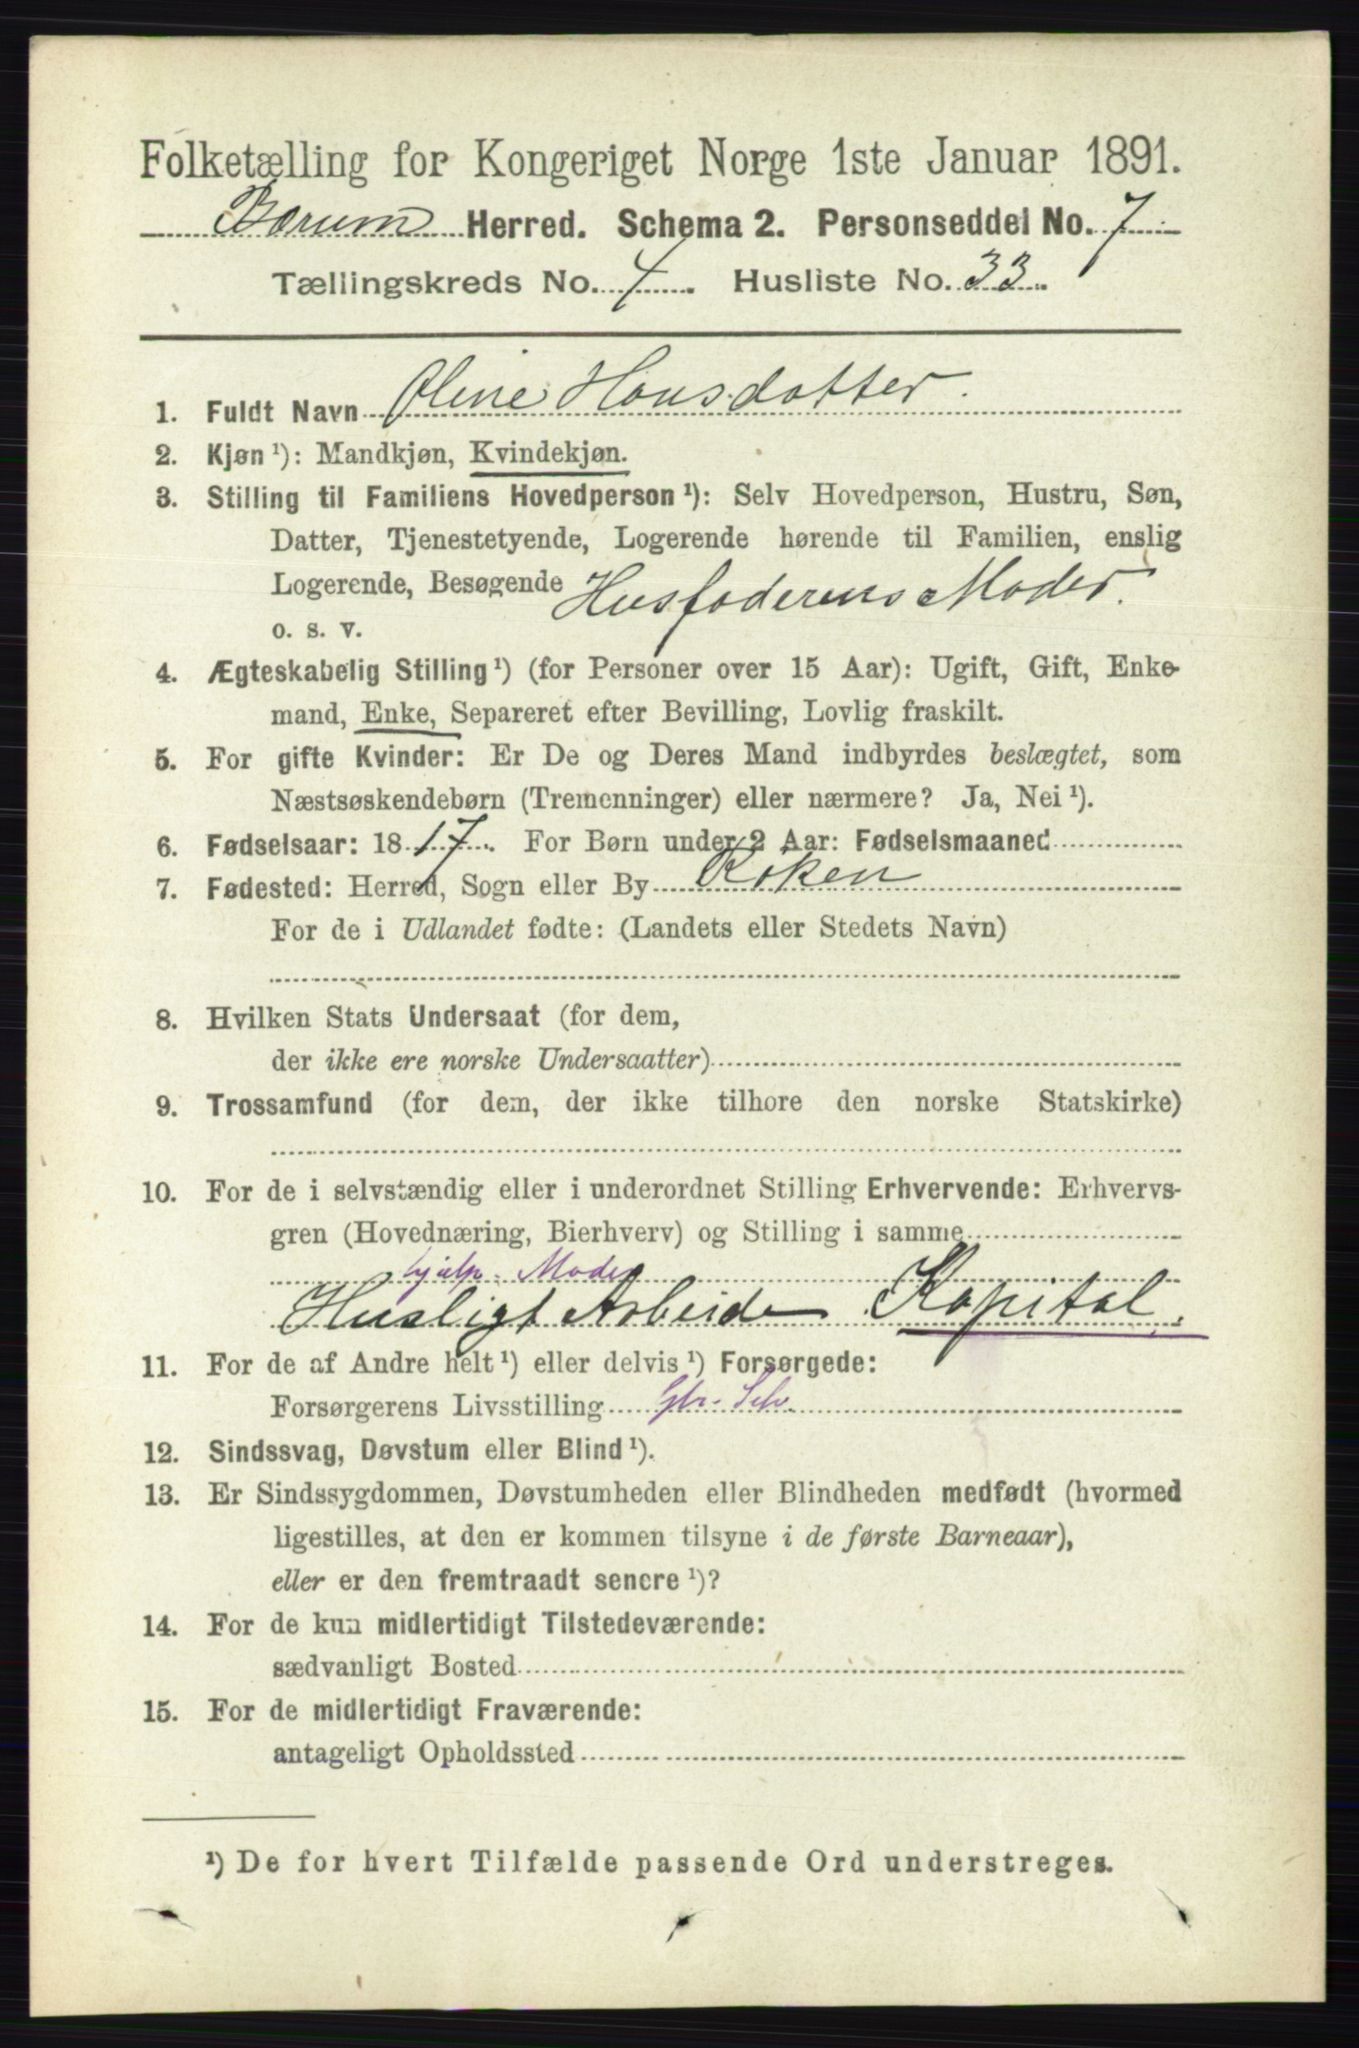 Folketælling for Kongeriget Norge 1ste Januar 1891.
Bærum Herred. Schema 2. Personseddel No. 7
Tællingskreds No. 4. Husliste No. 33.
1. Fuldt Navn Oline Hansdatter.
2. Kjøn ¹): Mandkjøn, Kvindekjøn.
3. Stilling til Familiens Hovedperson ¹): Selv Hovedperson, Hustru, Søn,
Datter, Tjenestetyende, Logerende hørende til Familien, enslig
Logerende, Besøgende Husfaderens Moder.
o. s. v.
4. Ægteskabelig Stilling ¹) (for Personer over 15 Aar): Ugift, Gift, Enke-
mand, Enke, Separeret efter Bevilling, Lovlig fraskilt.
5. For gifte Kvinder: Er De og Deres Mand indbyrdes beslægtet, som
Næstsøskendebørn (Tremenninger) eller nærmere? Ja, Nei ¹).
6. Fødselsaar: 1817. For Børn under 2 Aar: Fødselsmaaned
7. Fødested: Herred, Sogn eller By Røken
For de i Udlandet fødte: (Landets eller Stedets Navn)
8. Hvilken Stats Undersaat (for dem,
der ikke ere norske Undersaatter)
9. Trossamfund (for dem, der ikke tilhøre den norske Statskirke)
10. For de i selvstændig eller i underordnet Stilling Erhvervende: Erhvervs-
gren (Hovednæring, Bierhverv) og Stilling i samme
hjælp. Moder
Husligt Arbeide Kapital.
11. For de af Andre helt ¹) eller delvis ¹) Forsørgede:
Forsørgerens Livsstilling Gbr. Selv.
12. Sindssvag, Døvstum eller Blind ¹).
13. Er Sindssygdommen, Døvstumheden eller Blindheden medfødt (hvormed
ligestilles, at den er kommen tilsyne i de første Barneaar),
eller er den fremtraadt senere ¹)?
14. For de kun midlertidigt Tilstedeværende:
sædvanligt Bosted
15. For de midlertidigt Fraværende:
antageligt Opholdssted
¹) De for hvert Tilfælde passende Ord understreges.